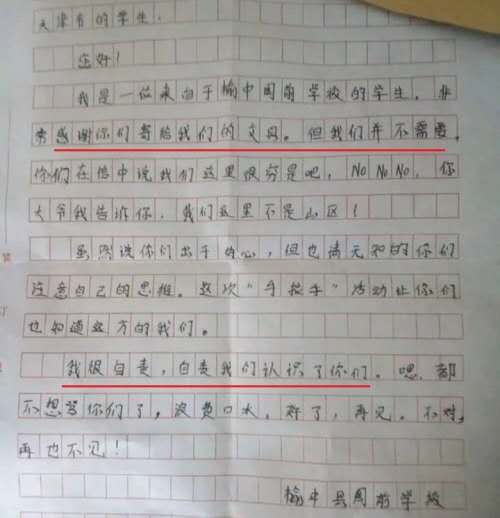 天津市的学生:
您好!
我是一位来自于榆中周前学校的学生,非
常感谢你们寄给我们的文具。但我们并不需要,
你们在信中说我们这里很穷是吧,NO NO NO,你
大爷我告诉你,我们这里不是山区!
虽然说你们出于好心,但也请无知的你们
注意自己的思维。这次“手拉手”活动让你们
也知道这方的我们。
我很自责,自责我们认识了你们。嗯,都
不想骂你们了,浪费口水。好了,再见。不对,
再也不见!
榆中县周前学校